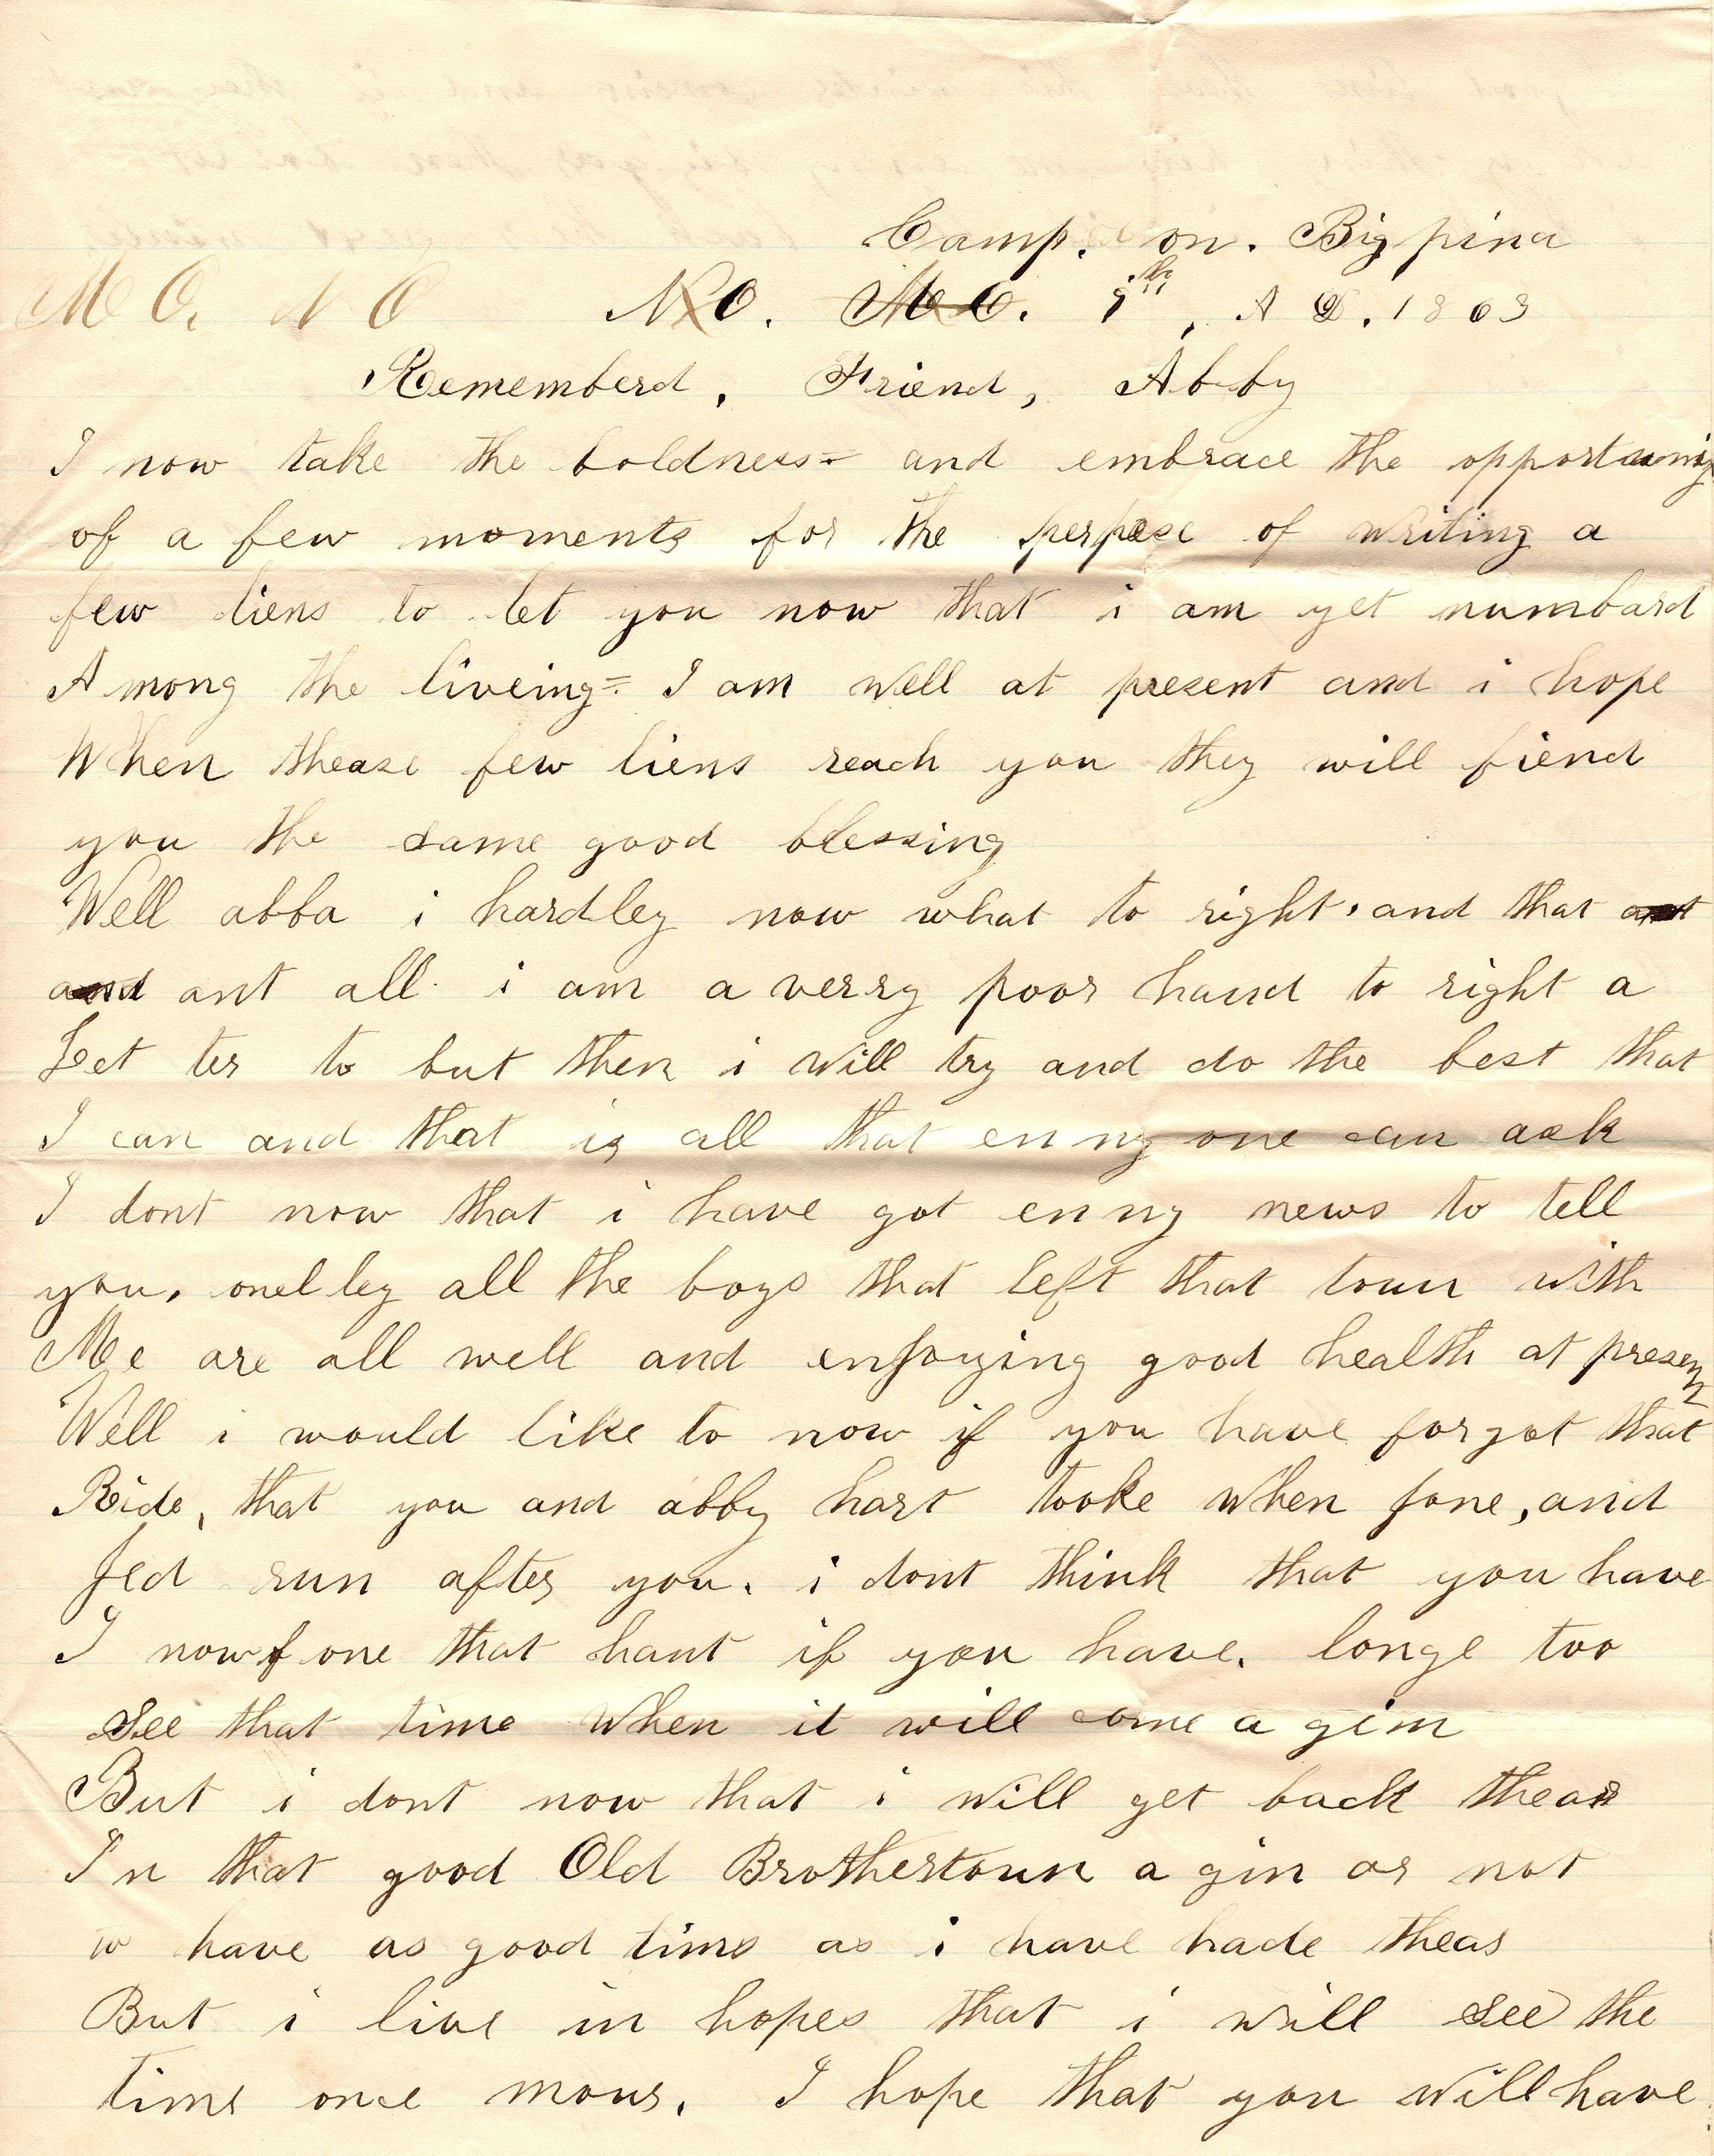 Camp. on. Big pina
M O. N O N O. M O. 9th, A D. 1863
Rememberd, Friend, Abby
I now take the boldness= and embrace the opportuniy
of a few moments for the perpose of writing a
few liens to let you now that i am yet numbard
Among the liveing= I am well at present and i hope
When thease few liens reach you they will fiend
you the same good blessing
Well abba i hardley now what to right, and that ant
and ant all. i am a verry poor hand to right a
Let ter to but then i will try and do the best that
I can and that is all that enny one can ask
I dont now that i have got enny news to tell
you, onelley all the boys that left that toun with
Me are all well and enjoying good health at present
Well i would like to now if you have forgot that
Ride, that you and abby hart tooke when jone, and
Jed run after you. i dont think that you have
I now of one that hant if you have. longe too
see that time when it will come a gim
But i dont now that i will get back thear
In that good Old Brothertoun a gin or not
to have as good time as i have hade thear
But i live in hopes that i will see the
time once mour. I hope that you will have